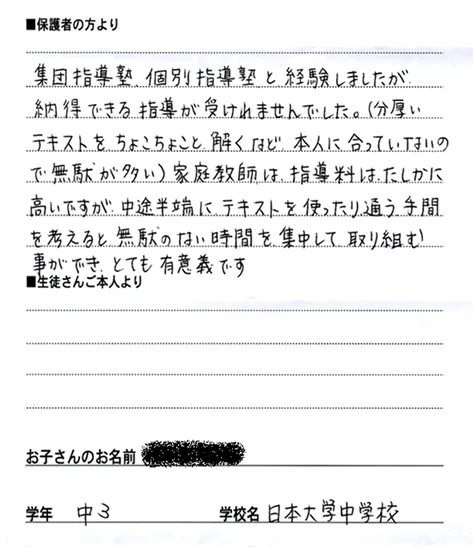 ■保護者の方より
集団指導塾、個別指導塾と経験しましたが、
納得できる指導が受けれませんでした。(分厚い
テキストを、ちょこちょこと解くなど、本人に合っていないの
で無駄が多い)家庭教師は、指導料は、たしかに
高いですが、中途半端にテキストを使ったり通う手間
を考えると無駄のない時間を集中して取り組む
事ができ、とても有意義です
■生徒さんご本人より
お子さんのお名前
学年 中3 学校名 日本大学中学校